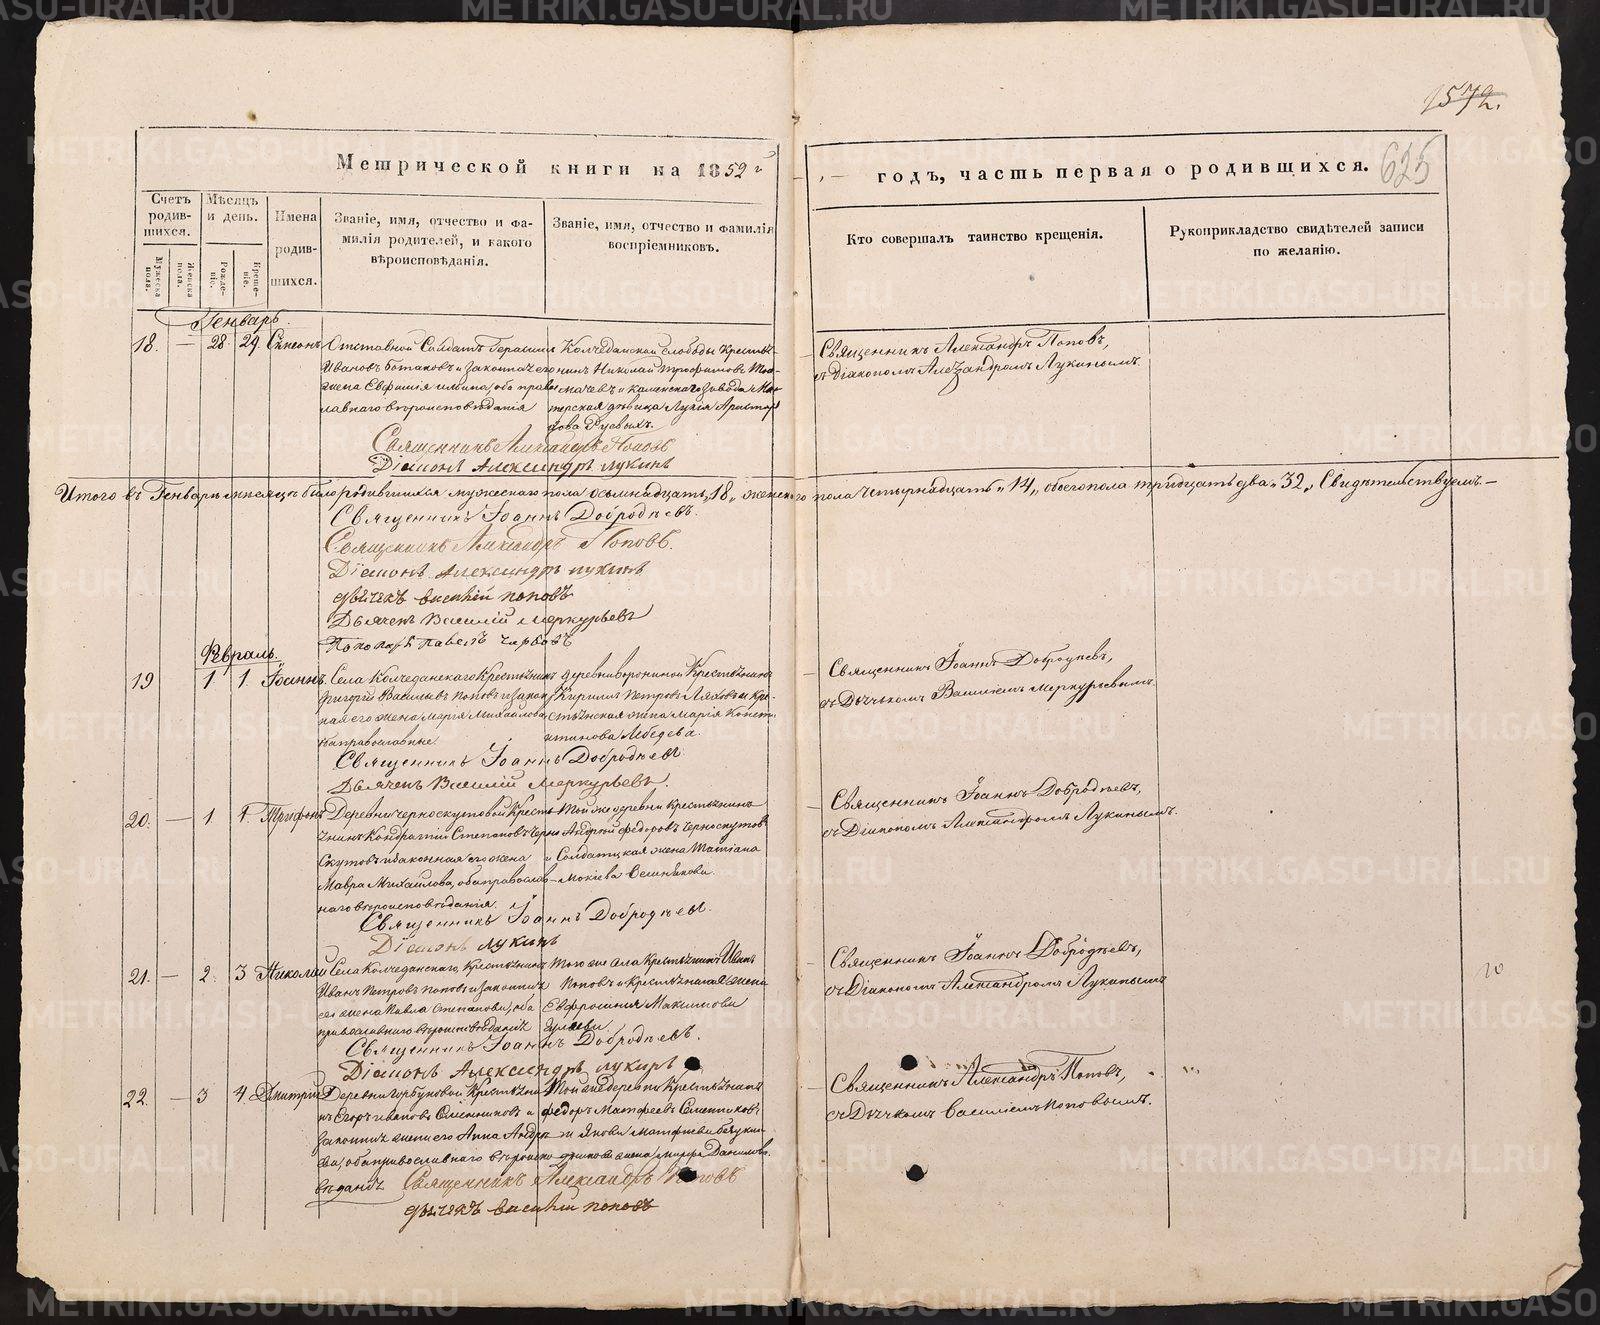 1572.
625
Метрической книги на 1852 г
годъ, часть первая о родившихся.
Счетъ родив-шихся.
Мужеска пола.
Женска пола.
Мѣсяцъ и день.
Рожде-ніе.
Креще-ніе.
Имена родив-шихся.
Званіе, имя, отчество и фа-
милія родителей, и какого
вѣроисповѣданія.
Званіе, имя, отчество и фамилія
воспріемниковъ.
Кто совершалъ таинство крещенія.
Рукоприкладство свидѣтелей записи
по желанію.
Генварь
18. — 28 29. Симеонъ
Отставной Солдатъ Герасимъ
Ивановъ и законная его
жена Евфимія оба право
славнаго вѣроисповѣданія
Колчеданской слободы Кресть
Николай Трофимовъ
и Каменскаго завода Ма-
терская дѣвица
Священникъ Александръ Поповъ,
съ Діакономъ Александромъ Лукинымъ.
Священникъ Александръ Поповъ
Діаконъ Александръ Лукинъ
Итого въ Генварѣ мѣсяцѣ было родившихся мужескаго пола осьмнадцать „18„ женскаго пола четырнадцать „14„ обоего пола тридцать два „32„ Свидѣтельствуемъ —
Священникъ Іоаннъ Добродѣевъ.
Священникъ Александръ Поповъ.
Діаконъ Александръ Лукинъ
дьячекъ василій поповъ
Дьячекъ Василій Меркурьевъ
Пономарь Павелъ
Февраль.
19 1 1. Іоаннъ.
Села Колчеданскаго Крестьянинъ
Григорій Васильевъ Поповъ и закон
ная его жена Марія Михайлова
православные.
деревни Ворониной Крестьянинъ
Кириллъ Петровъ и кре-
стьянская жена Марія Конста
нтинова Лебедева.
Священникъ Іоаннъ Добродѣевъ,
съ Дьячкомъ Василіемъ Меркурьевымъ.
Священникъ Іоаннъ Добродѣевъ
Дьячекъ Василій Меркурьевъ.
20. — 1 1. Трифонъ
Деревни Черноскутовой Кресть
янинъ Кондратій Степановъ Черно
скутовъ и законная его жена
Мавра Михайлова, оба православ—
наго вѣроисповѣданія.
Той же деревни Крестьянинъ
Андрей Федоровъ Черноскутовъ
и Солдатская жена Татіана
Мокіева
Священникъ Іоаннъ Добродѣевъ,
съ Діакономъ Александромъ Лукинымъ.
Священникъ Іоаннъ Добродѣевъ.
Діаконъ Лукинъ
21. — 2. 3 Николай
Села Колчеданскаго, Крестьянинъ
Иванъ Петровъ Поповъ и законная
его жена Павла Степанова, оба
православнаго вѣроисповѣданія
Того же села Крестьянинъ Иванъ
Поповъ и Крестьянская жена
Евфросинія Максимова
Священникъ Іоаннъ Добродѣевъ,
съ Діакономъ Александромъ Лукинымъ
Священникъ Іоаннъ Добродѣевъ.
Діаконъ Александръ Лукинъ
22. — 3 4. Димитрій
Деревни Горбуновой Крестьяни
нъ Егоръ Ивановъ и
законная жена его Анна Андре
ева, оба православнаго вѣроиспо
вѣданія
Той же деревни Крестьянинъ
Федоръ Матфеевъ
жена Марфа Данилова.
Священникъ Александръ Поповъ,
съ Дьячкомъ Василіемъ Поповымъ.
Священникъ Александръ Поповъ
дьячекъ василій поповъ
METRIKI.GASO-URAL.RU